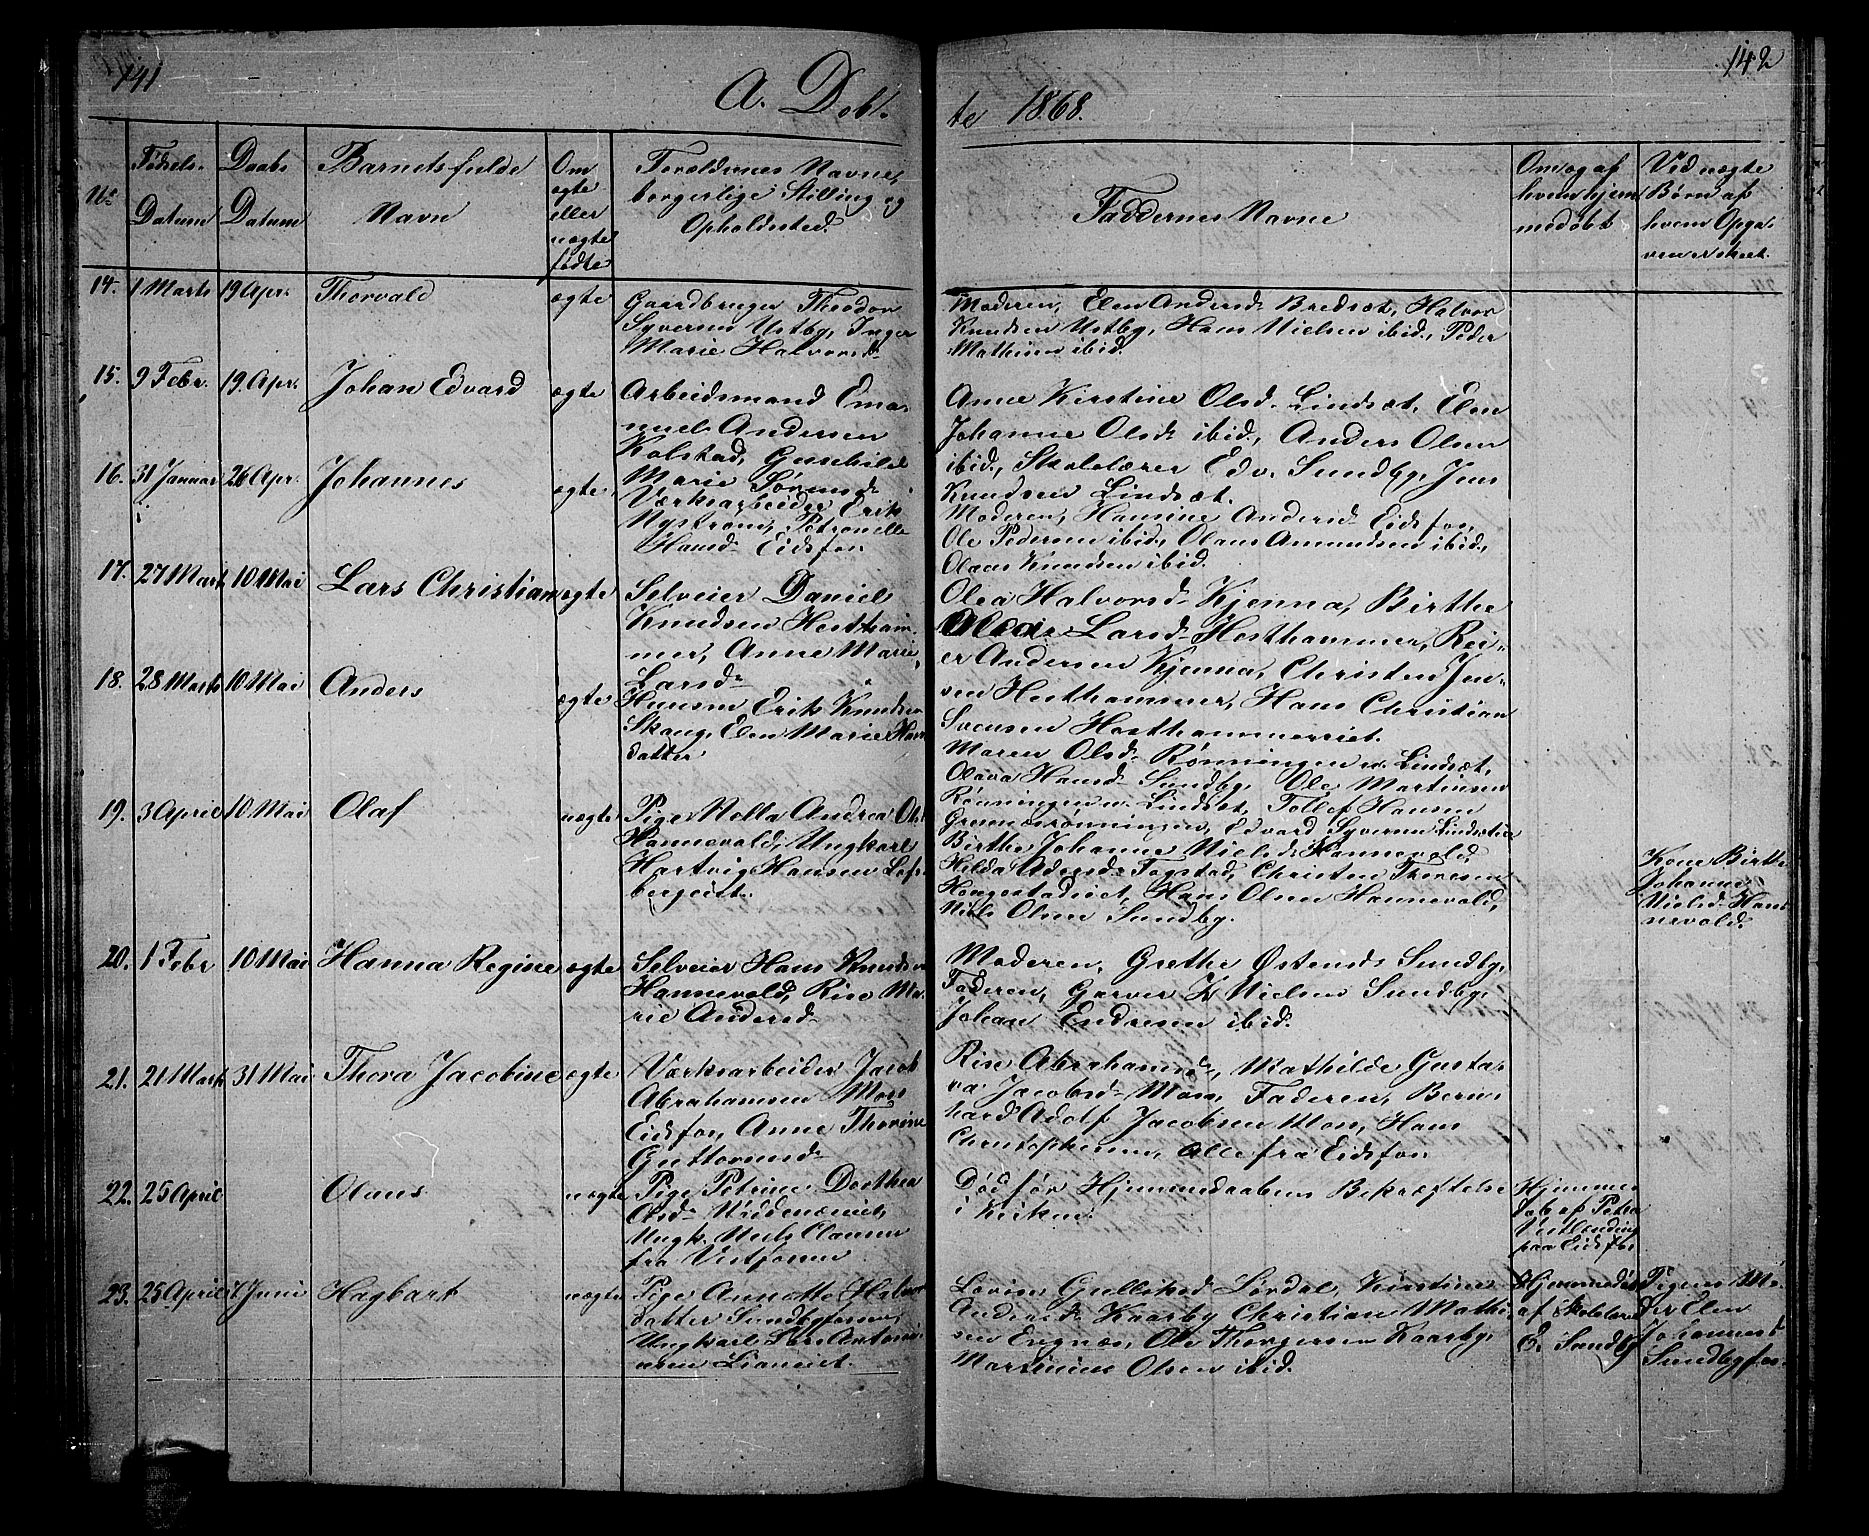 141
142
A. Døbte 1868.
No
Fødsels-
Datum
Daabs
Datum
Barnets fulde
Navn
Om
ægte
eller
uægte
fødte
Forældrenes Navne,
borgerlige Stilling og
Opholdssted.
Faddernes Navne
Om og af
hvem hjem
medøbt
Ved uægte
Børn af
hvem Opga-
ven er skeet.
14. 1 Marts 19 Apr. Thorvald ægte
Gaardbruger Theodor
Syversen Ustby, Inger
Marie Halvorsd.
Moderen, Elen Andersd. Bredsæt, Halvor
Knudsen Ustby, Hans Nielsen ibid, Peder
Mathisen ibid.
15. 9 Febr. 19. Apr. Johan Edvard ægte
Arbeidsmand Ema-
nuel Andersen
Kolstad,
Marie Sørensd.
Anne Kirstine Olsd. Lindsæt, Elen
Johanne Olsd. ibid., Anders Olsen
ibid., Skolelærer Edv. Sundby, Jens
Knudsen Lindsæt.
16. 31 Januar 26 Apr. Johannes ægte
Værksarbeider Erik
Nystrøm, Petronelle
Hansd. Eidsfos
Moderen, Hansine Andersd. Eidsfos,
Ole Pedersen ibid., Olaus Amundsen ibid.,
Olaus Knudsen ibid.
17. 27 Marts 10 Mai Lars Christian ægte
Selveier Daniel
Knudsen Hestham-
mer, Anne Marie
Larsd.
Olea Halvorsd. Kjenna, Birthe
Olea Larsd. Hesthammer, Rei-
er Andersen Kjenna, Christen Jen-
sen Hesthammer, Hans Christian
Svensen Hesthammereiet.
18. 28 Marts 10 Mai Anders ægte
Huusm. Erik Knudsen
Skaug, Elen Marie Hans
datter
Maren Olsd. Rønningen u. Lindsæt,
Olava Hansd. Sundby, Ole Martinsen
Rønningen u. Lindsæt, Tollef Hansen
Grønsrønningen, Edvard Syversen Lindsæteie
19. 3 April 10 Mai Olaf uægte
Pige Molla Andrea Ols.
Hannevold, Ungkarl
Hartvig Hansen Lofs-
bergeiet.
Birthe Johanne Nielsd. Hannevold,
Hilda Andersd. Fogstad, Christen Thoresen
Haugestadeiet, Hans Olsen Hannevold,
Niels Olsen Sundby.
Kone Birthe
Johanne
Nielsd. Han-
nevold.
20. 1 Febr 10 Mai Hanna Regine ægte
Selveier Hans Knudsen
Hannevold, Rise Ma-
rie Andersd.
Moderen, Grethe Østensd. Sundby,
Faderen, Garver K Nielsen Sundby,
Johan Endresen ibid.
21. 21 Marts 31 Mai Thora Jacobine ægte
Værksarbeider Jacob
Abrahamsen Moss
Eidsfos, Anne Thorine
Guttormsd.
Rise Abrahamsd., Mathilde Gusta-
va Jacobsd. Moss, Faderen, Bern-
hard Adolf Jacobsen Moss, Hans
Christophersen, Alle fra Eidsfos
22. 25 April Olaus uægte
Pige Petrine Dorthea
Olsd.
Ungk. Niels Clausen
fra Vestfossen
Død før Hjemmedaabens Bekræftelse
i Kirken.
Hjemme-
døb af Petra
paa Eidsfos
23. 25 April 7 Juni Hagbart uægte
Pige Annette Halvors
datter Sundbyfossen,
Ungkarl
Lovise Gulliksd. Lørdal, Kirstine
Andersd. Kaarby, Christian Mathi-
sen Engnæs, Ole Thorgersen Kaarby,
Martinius Olsen ibid.
Hjemmedøbt
af Skolelærer
E. Sundby
Pigens Mo-
der Elen
Johannesd.
Sundbyfos.